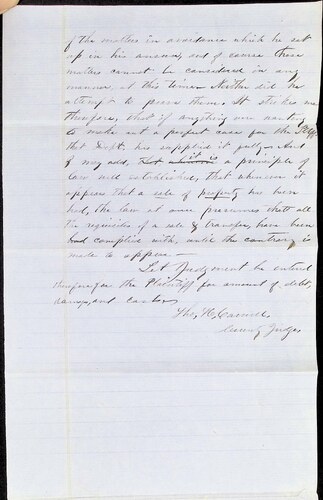 of the matters in avoidance which he set
up in his answer, out of course these
matters cannot be considered in any
manner, at this time. Neither did he
attempt to prove them. It strikes me
therefore, that if anything was wanting
to make out a perfect case for the Plff
that Deft. has supplied it fully - And
I may add, it is a principle of
law well established, that whenever it
appears that a sale of property has been
had, the law at once presumes that all
the requisites of a sale & transfer, have been
had complied with, until the contrary is
made to appear -
Let Judgment be entered
therefore for the Plaintiff for amount of debt,
damages, and costs
Thos. H.
County Judge